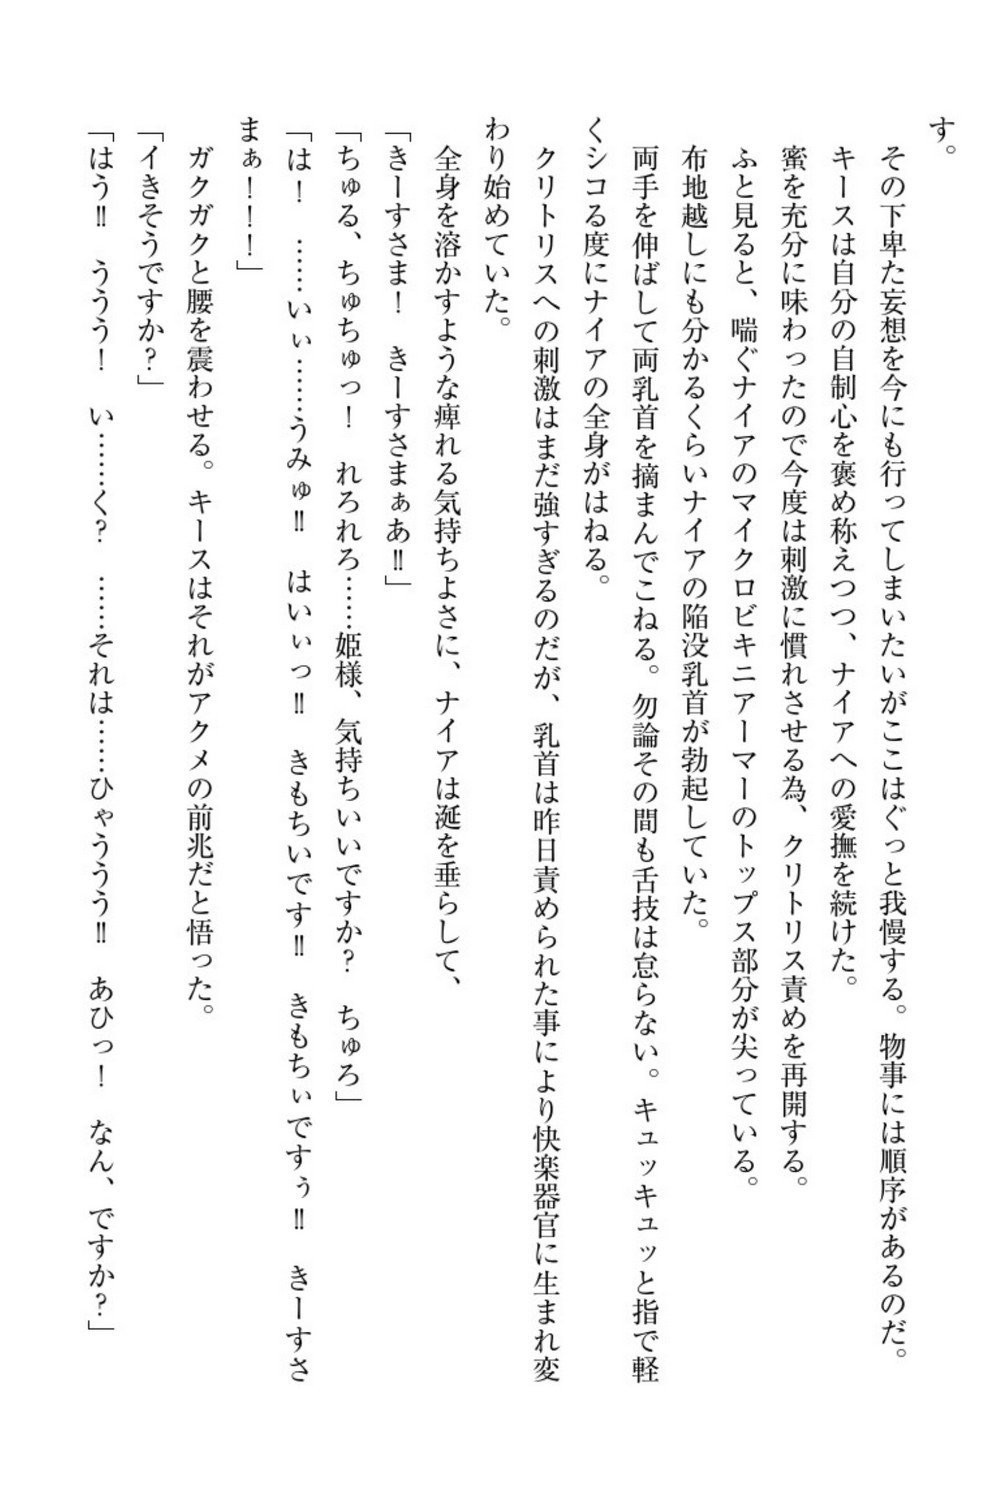 す。
その下卑た妄想を今にも行ってしまいたいがここはぐっと我慢する。物事には順序があるのだ。
キースは自分の自制心を褒め称えつつ、ナイアへの愛撫を続けた。
蜜を充分に味わったので今度は刺激に慣れさせる為、クリトリス責めを再開する。
ふと見ると、喘ぐナイアのマイクロビキニアーマーのトップス部分が尖っている。
布地越しにも分かるくらいナイアの陥没乳首が勃起していた。
両手を伸ばして両乳首を摘まんでこねる。勿論その間も舌技は怠らない。キュッキュッと指で軽
くシコる度にナイアの全身がはねる。
クリトリスへの刺激はまだ強すぎるのだが、乳首は昨日責められた事により快楽器官に生まれ変
わり始めていた。
全身を溶かすような痺れる気持ちよさに、ナイアは涎を垂らして、
「きーすさま！　きーすさまぁあ‼」
「ちゅる、ちゅちゅっ！　れろれろ……姫様、気持ちいいですか？　ちゅろ」
「は！　……いぃ……うみゅ‼　はいぃっ‼　きもちいです‼　きもちぃですぅ‼　きーすさ
まぁ！！！」
ガクガクと腰を震わせる。キースはそれがアクメの前兆だと悟った。
「イきそうですか？」
「はう‼　ううう！　い……く？　……それは……ひゃううう‼　あひっ！　なん、ですか？」